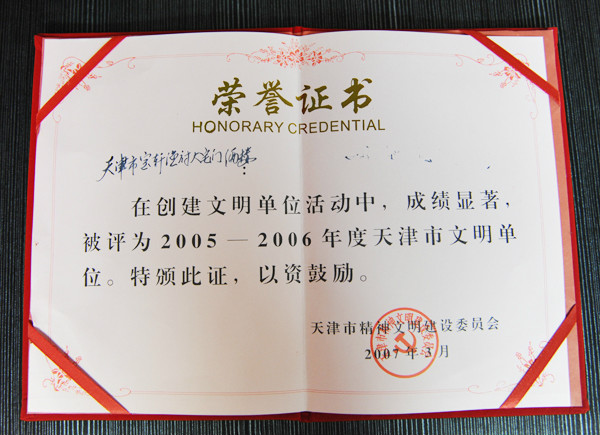 荣誉证书
HONORARY CREDENTIAL
天津市宝轩渔府大名门酒楼:
在创建文明单位活动中，成绩显著，
被评为2005—2006年度天津市文明单
位。特颁此证，以资鼓励。
天津市精神文明建设委员会
2007年3月